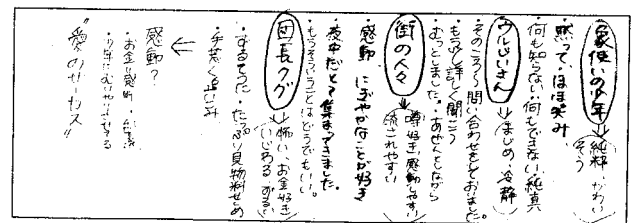 象使いの少年→純粋、かわいそう
・黙って、ほほ笑み
・何も知らない・何もできない・純真
ウルじいさん→まじめ、冷静
・そのころ、問い合わせをしておいました。
・もう少し詳しく聞こう
・むっとしました。・あぜんとしながら
街の人々→噂好き、感動しやすい
流されやすい
・感動 にぎやかなことが好き
・夜中だというのに集まってきました。
・もうそういうことはどうでもいい。
団長クグ→怖い、お金好き
いじわる、ずるい
・するてえと・たっぷり見物料せしめ
・手荒く追い
感動？
・お金に感動
・少年に
“愛のサーカス”